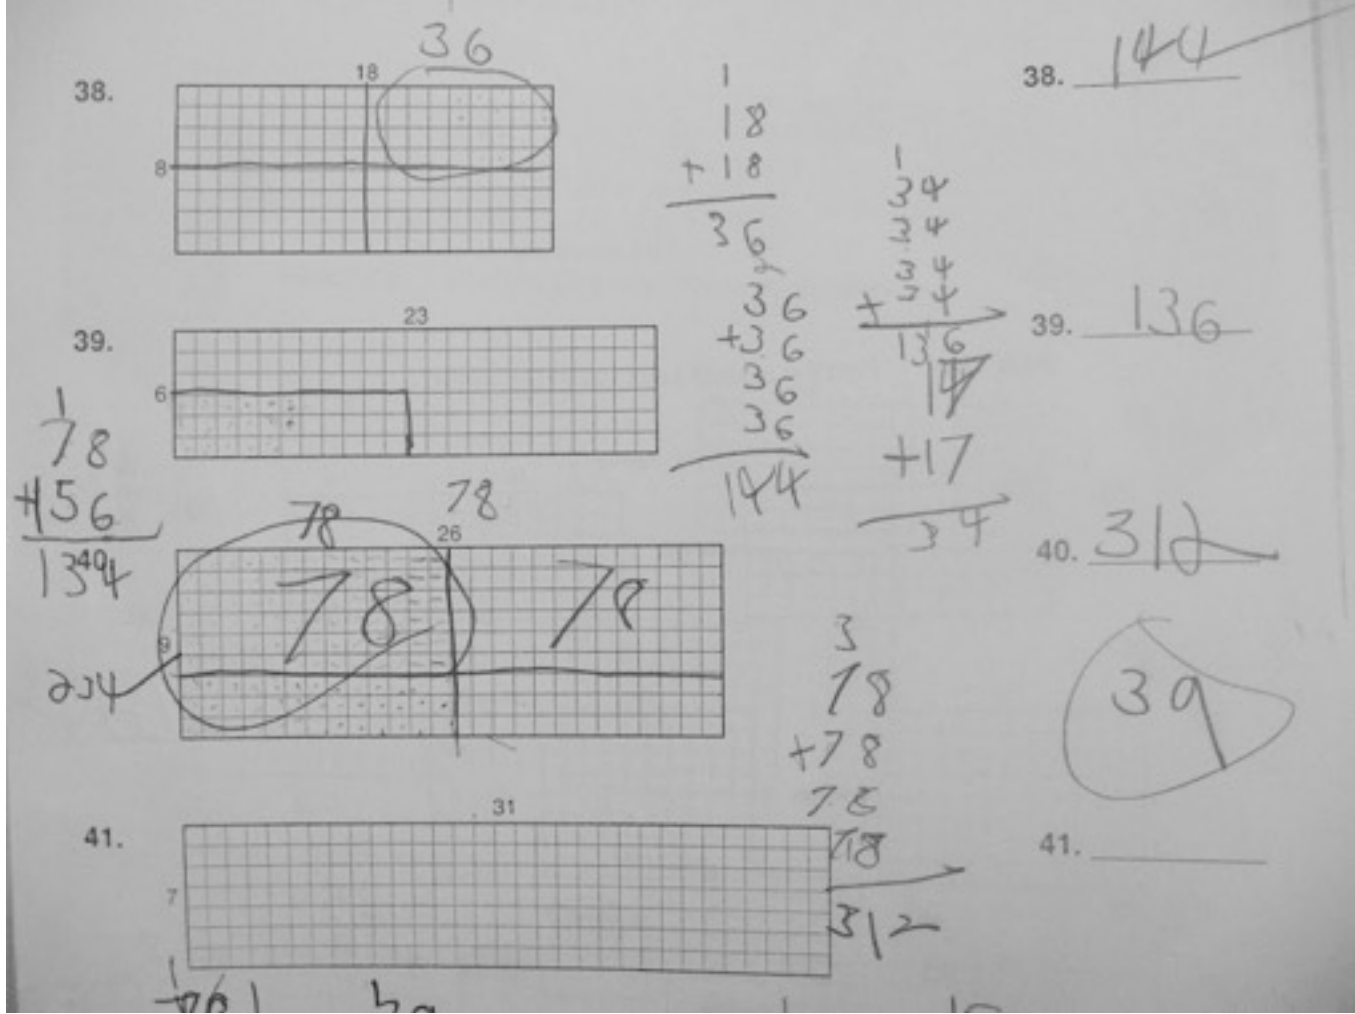 36
38.
18
8
1
18
+ 18
36
36
+36
36
36
144
1
34
34
34
+ 34
136
17
+17
34
38. 144
39.
23
6
39. 136
1
78
+156
134
234
40
78
78
26
9
78
78
40. 312
3
78
+78
78
78
312
39
41.
31
7
41.